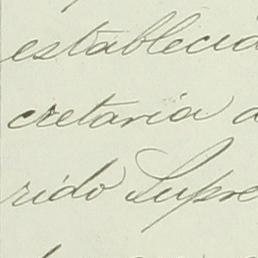 establecid
cretaria d
rido Supre